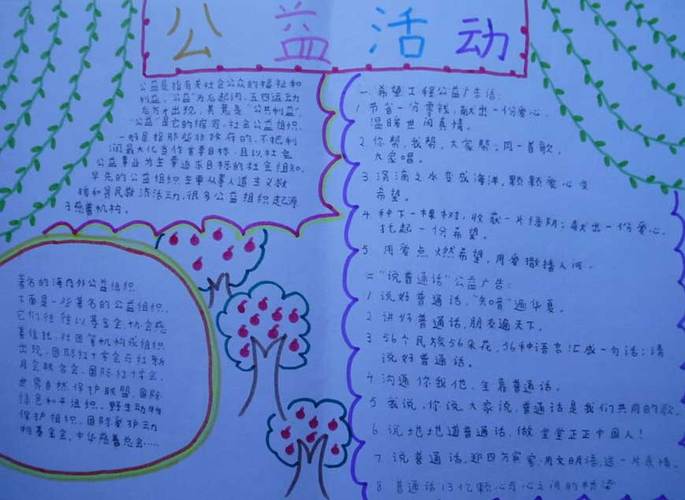 公益活动
公益是指有关社会公众的福祉和
利益。"公益"为后起词，五四运动
后方才出现，其意是"公共利益"，
"公益"是它的缩写。社会公益组织，
一般是指那些非政府的、不把利
润最大化当作首要目标，且以社会
公益事业为主要追求目标的社会组织。
早先的公益组织主要从事人道主义救
援和贫民救济活动，很多公益组织起源
于慈善机构。
著名的海内外公益组织
下面是一些著名的公益组织，
它们往往以基金会、协会、慈
善信托、社团等机构或组织
出现。国际红十字会与红新
月会联合会、国际红十字会、
世界自然保护联盟、国际
绿色和平组织、野生动物
保护组织、国际爱护动
物基金会、中华慈善总会……
一、希望工程公益广告语：
1 节省一分零钱，献出一份爱心，
温暖世间真情。
2 你帮，我帮，大家帮；同一首歌，
大爱唱。
3 涓滴之水变成海洋，颗颗爱心变
希望。
4 种下一棵树，收获一片绿荫；献出一份爱心，
托起一份希望。
5 用爱点燃希望，用爱撒播人间。
二"说普通话"公益广告：
1 说好普通话，"知音"遍华夏。
2 讲好普通话，朋友遍天下。
3 56个民族56朵花，56种语言汇成一句话：请
说好普通话。
4 沟通你我他，全靠普通话。
5 我说，你说，大家说，普通话是我们共同的歌。
6 说地地道道普通话，做堂堂正正中国人！
7 说普通话，迎四方宾客；用文明语，送一片真情。
8 普通话：13亿颗心与心之间的桥梁